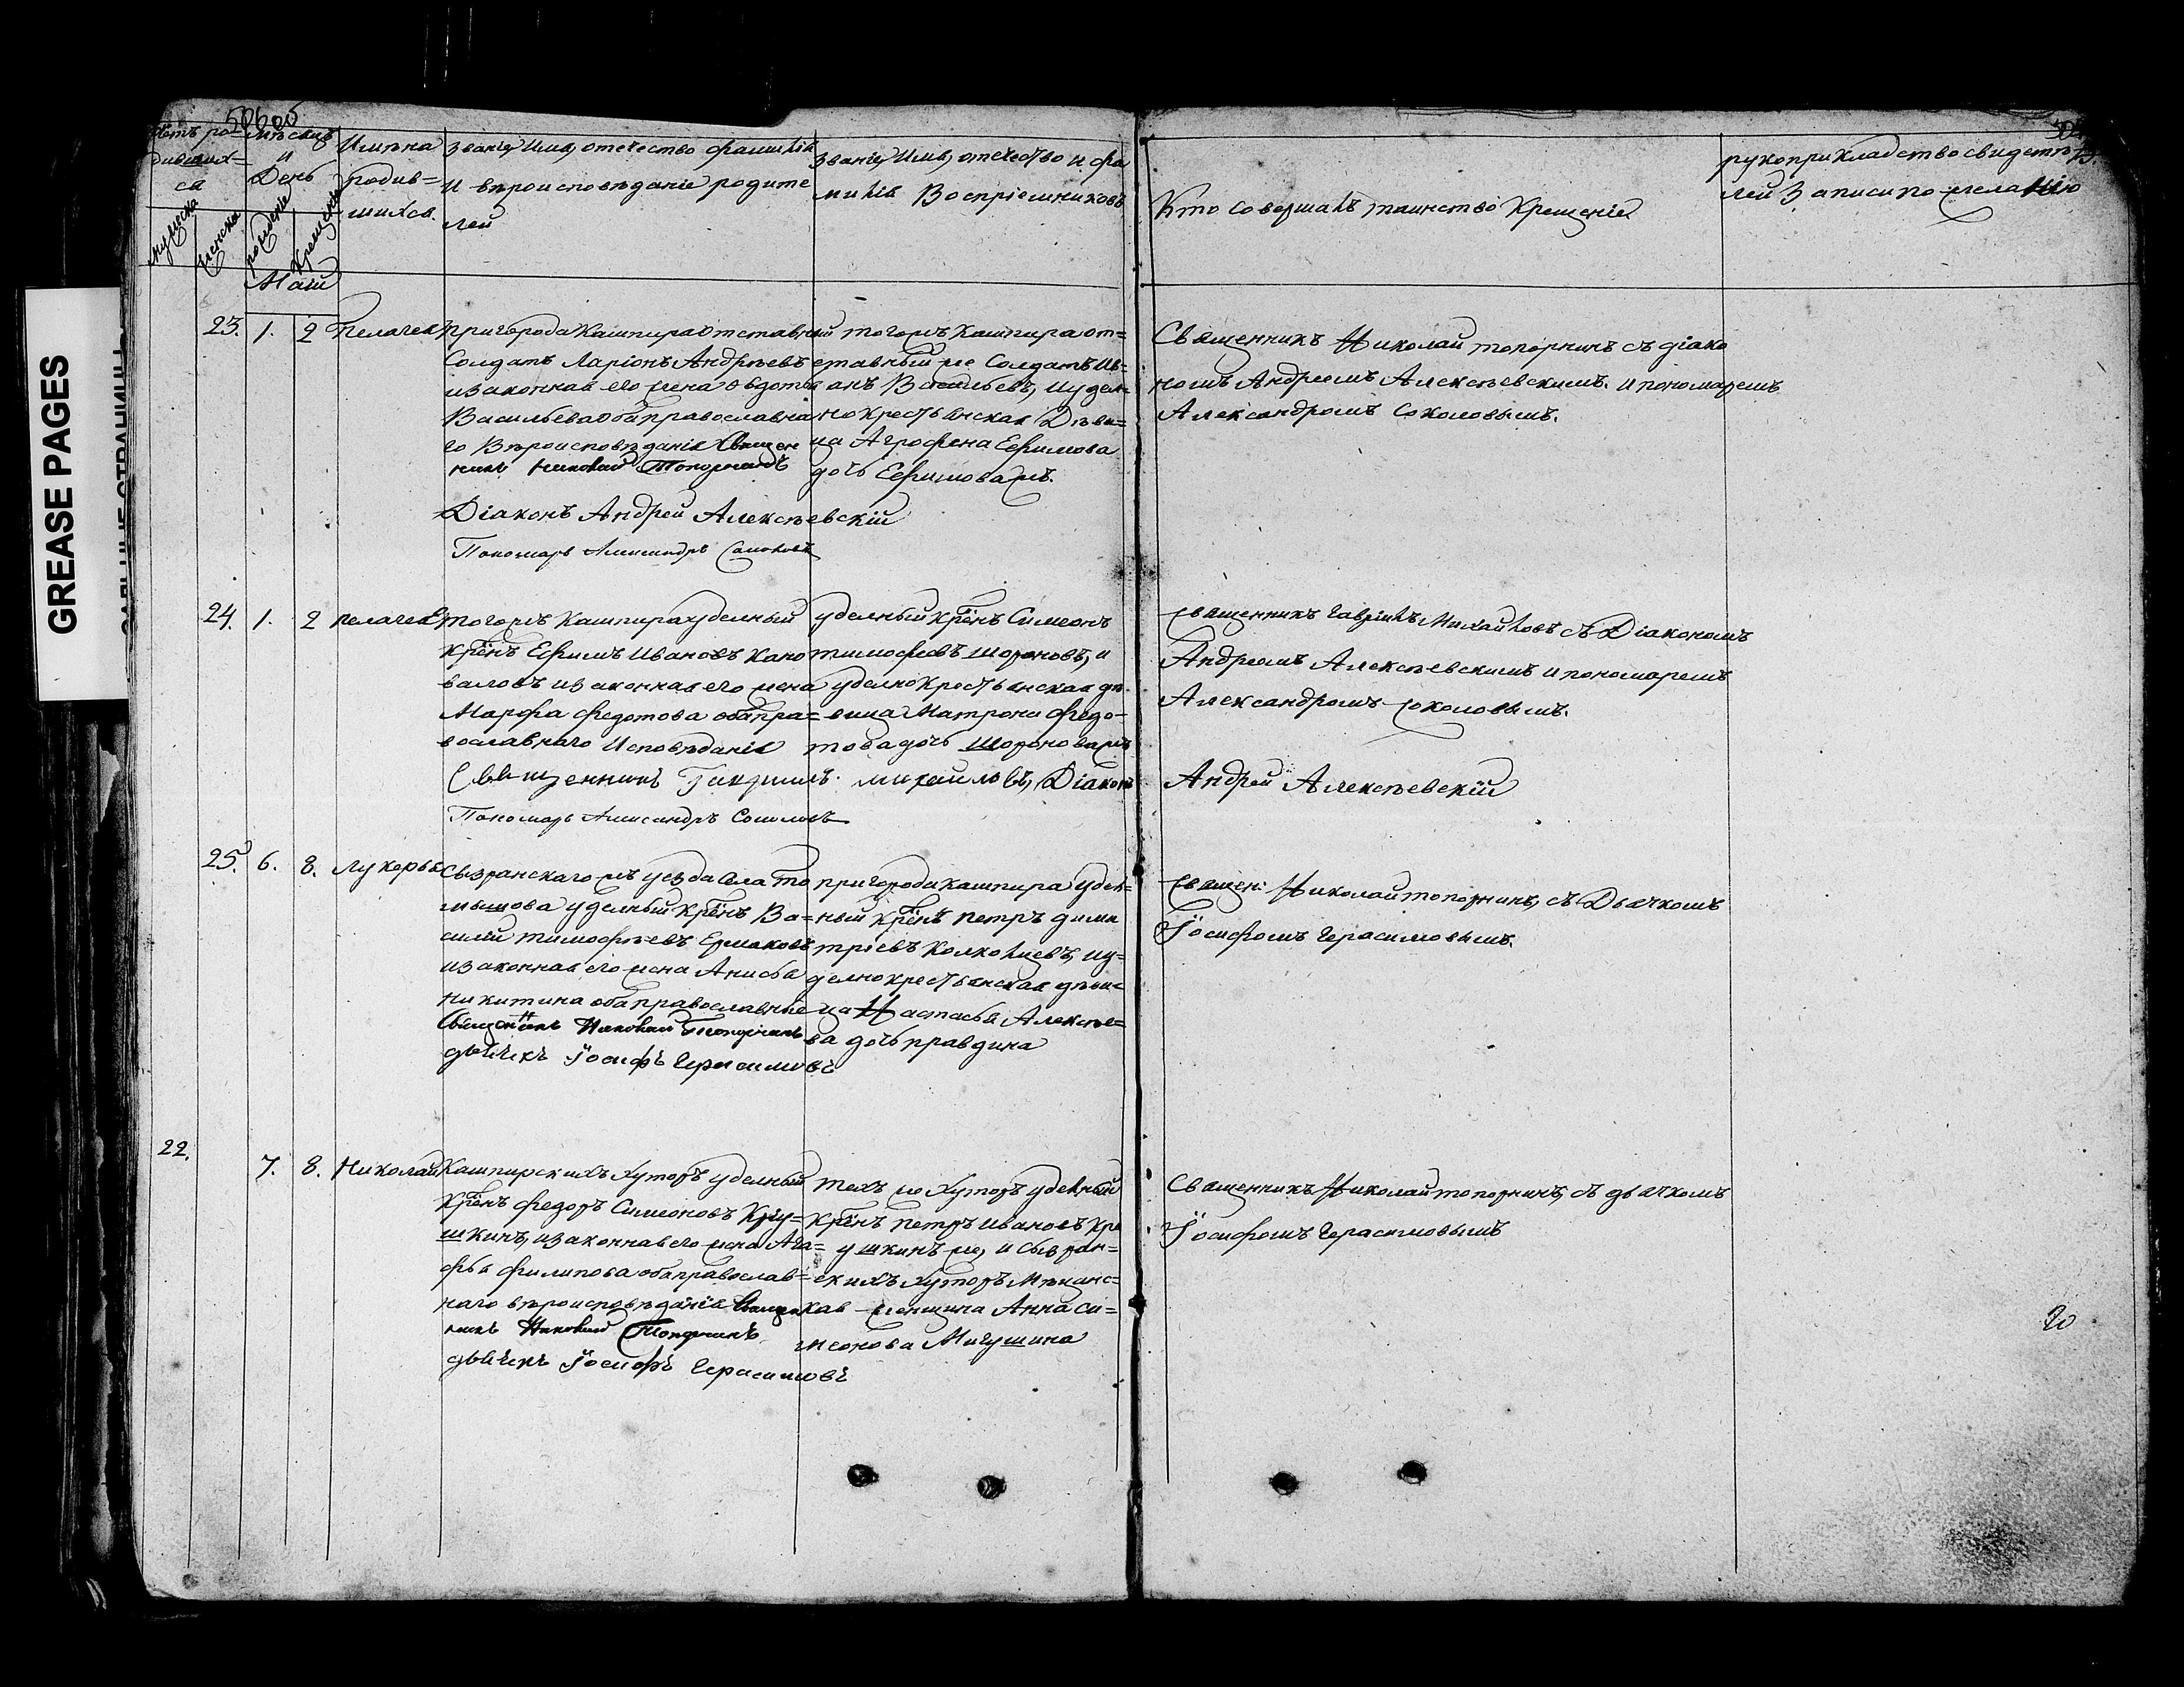 GREASE PAGES
Счетъ ро=
дивших=
ся
мужеска
женска
Мѣсяцъ
и
День
рожденіе
Крещеніе
Маій
Имѣна
родив=
шихся.
Званіе, Имя, отечество фамилія
И вѣроисповѣданіе родите
лей
Званіе, Имя, отечество и фа
милія Воспріемниковъ
Кто совершалъ таинство Крещенія
рукоприкладство свидетѣ
лей Записи по желанію
23. 1. 2 Пелагея
пригорода Кашпира отставный
Солдатъ Ларіонъ Андрѣевъ
и законная его жена Ѳедотья
Васильева оба православна
го Вѣроисповѣданія Священ
никъ Николай Топорнинъ
Діаконъ Андрей Алексѣевскій
Пономарь Александръ Соколовъ
тогожъ Кашпира от=
ставный же Солдатъ Ив=
анъ Васильевъ, и удел=
но крестьянская Дѣви=
ца Агрофена Ефимова
дочь Ефимова жъ.
Священникъ Николай топорнинъ съ діако
номъ Андреемъ Алексѣевскимъ. и пономаремъ
Александромъ Соколовымъ.
24. 1. 2 пелагея
тогожъ Кашпира уделный
крѣнъ Ефимъ Ивановъ Коно
валовъ и законная его жена
Марфа Федотова оба пра=
вославнаго Исповѣданія
Священникъ Гавріилъ Михайловъ, Діаконъ
Андрей Алексѣевскій
Пономарь Александръ Соколовъ
уделный крѣнъ Симеонъ
тимофеевъ Шороновъ, и
уделно крестьянская дѣ=
вица Матрона Федо=
това дочь Шоронова жъ
священникъ Гавріилъ Михайловъ съ Діакономъ
Андреемъ Алексѣевскимъ и пономаремъ
Александромъ соколовымъ.
25. 6. 8. Лукерья
Сызранскаго жъ уезда села То
мышова уделный крѣнъ Ва=
силій тимофѣевъ Ермаковъ
и законная его жена Анисья
Никитина оба православные
Священникъ Николай Топорнинъ
дьячекъ Іосифъ Герасимовъ
пригорода Кашпира удел=
ный крѣнъ Петръ дими
тріевъ Колкольцевъ, и у=
делно крестьянская дѣви=
ца Настасья Алексѣе=
ва дочь правдина
священ: Николай топорнинъ, съ Дьячкомъ
Іосифомъ Герасимовымъ.
22. 7. 8. Николай
Кашпирскихъ Хуторъ уделный
крѣнъ Федоръ Симеоновъ Крiу=
шкинъ, и законная его жена Ага=
фья Филипова оба православ=
наго вѣроисповѣданія Священ
никъ Николай Топорнинъ
дьячекъ Іосифъ Герасимовъ
техъ же Хуторъ уделный
крѣнъ Петръ Ивановъ Крi
ушкинъ же, и Сызран=
скихъ Хуторъ Мѣщанс=
кая женщина Анна Си=
меонова Мигушина
Священникъ Николай топорнинъ, съ дьячкомъ
Іосифомъ Герасимовымъ
20